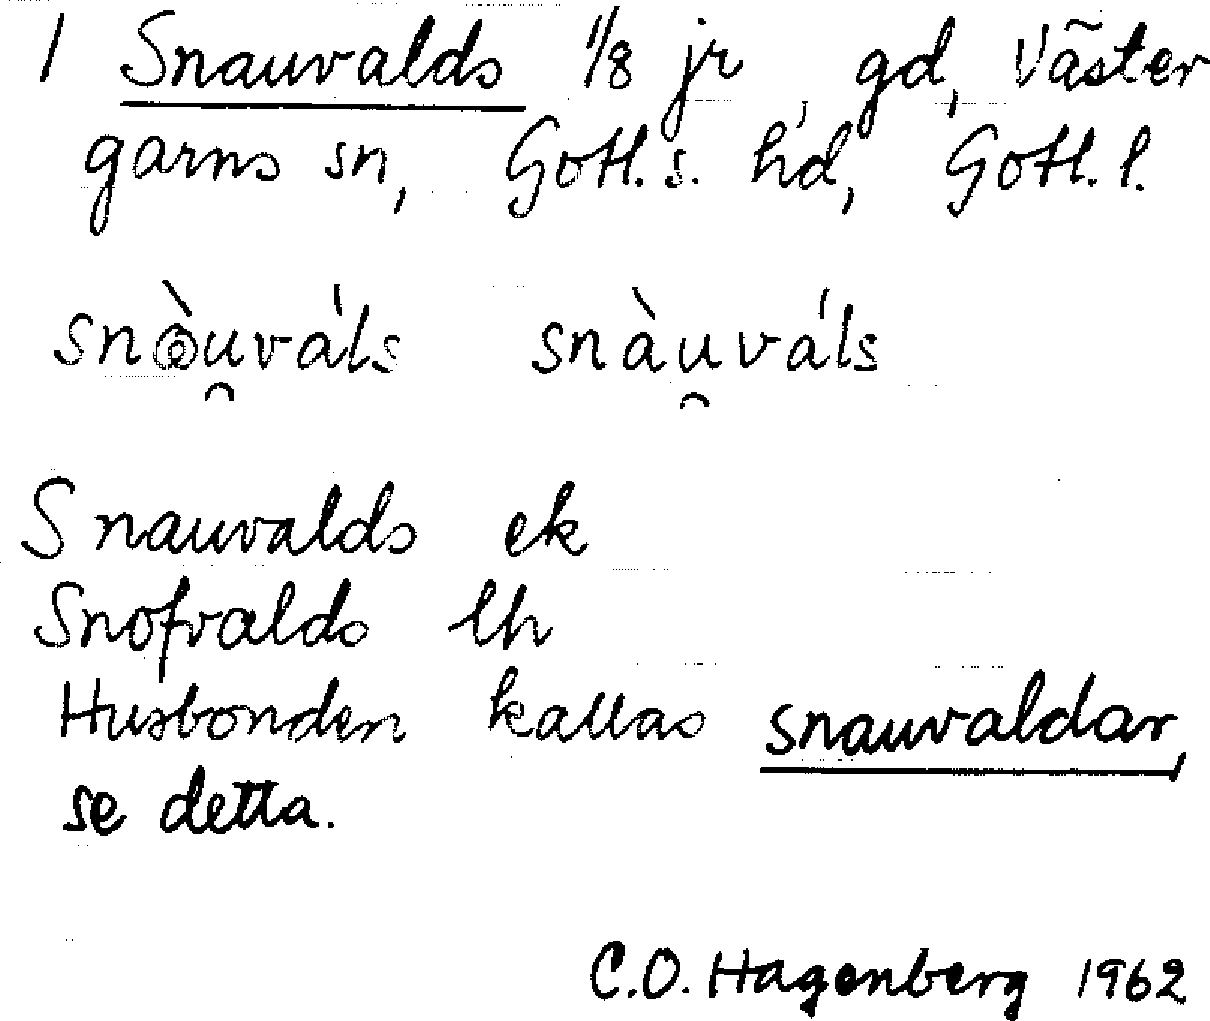 1 Snauvalds 1/8 jr, gd, Väster
garns sn, Gotl. s. hd, Gotl. l.
snòu̯váls snàu̯váls
Snauvalds ek
Snofvalds lh
Husbonden kallas snauvaldar,
se detta.
C.O. Hagenberg 1962